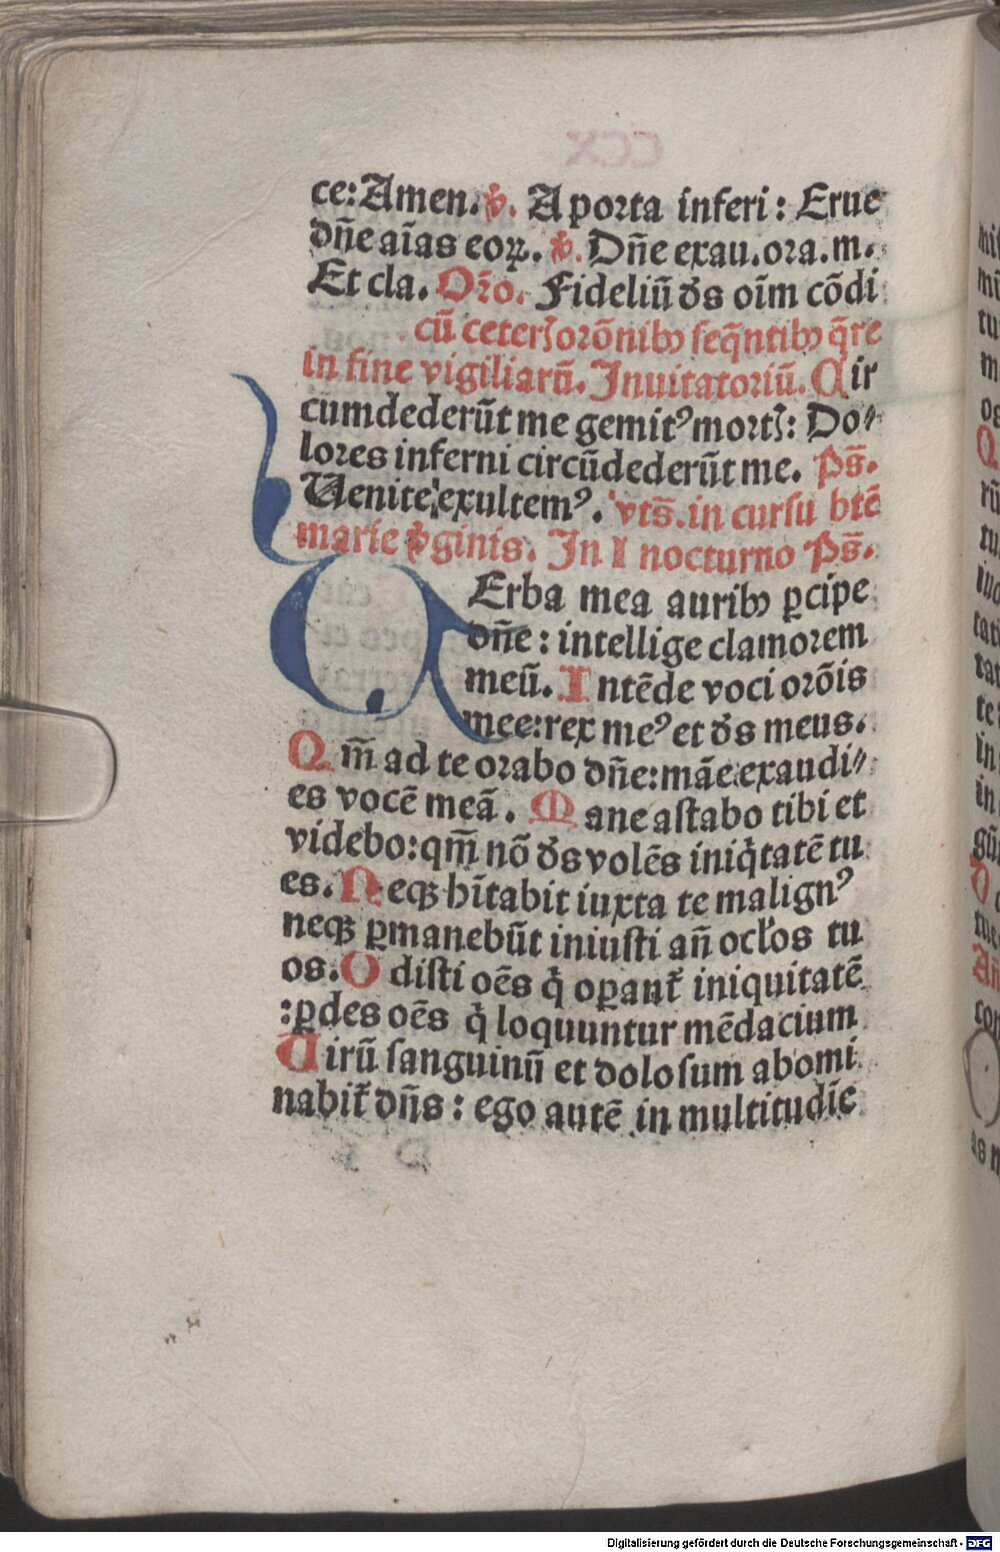 ce: Amen. ꝟ. A porta inferi: Erue
dn̄e aīas eoꝝ. ꝟ. Dn̄e exau. ora. m.
Et cla. Or̄o. Fideliū ds oīm cōdi
cū ceterꝭ orōnibꝫ seq̄ntibꝫ q̄re
in fine vigiliarū. Inuitatoriū. Cir
cumdederūt me gemitꝰ mortꝭ: Do⸗
lores inferni circūdederūt me. Ps̄.
Uenite exultemꝰ. vts̄. in cursu btē
marie ꝟginis. In I nocturno Ps̄.
UErba mea auribꝫ ꝑcipe
dn̄e: intellige clamorem
meū. Intēde voci orōis
mee: rex meꝰ et ds meus.
Qm̄ ad te orabo dn̄e: māe exaudi⸗
es vocē meā. Mane astabo tibi et
videbo: qm̄ nō ds volēs iniq̇tatē tu
es. Neqꝫ hītabit iuxta te malignꝰ
neqꝫ ꝑmanebūt iniusti an̄ ocłos tu
os. Odisti oēs q̇ oꝑant᷑ iniquitatē
: ꝑdes oēs q̇ loquuntur mēdacium
Uirū sanguinū et dolosum abomi
nabit᷑ dn̄s: ego autē in multitudīe
Digitalisierung gefördert durch die Deutsche Forschungsgemeinschaft - DFG